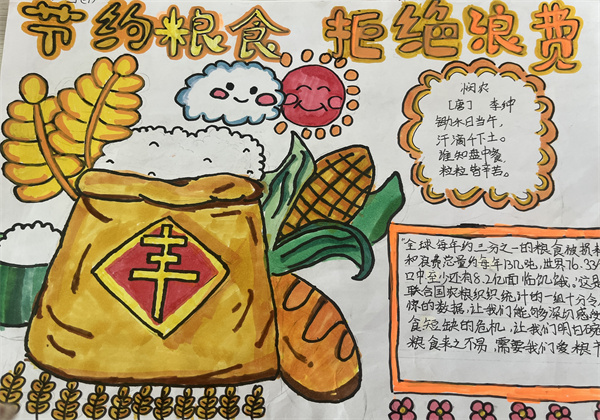 节约粮食 拒绝浪费
悯农
[唐] 李绅
锄禾日当午,
汗滴禾下土。
谁知盘中餐,
粒粒皆辛苦。
丰
"全球每年约三分之一的粮食被损耗
和浪费总量约每年13亿吨,世界76.3亿
口中至少还有8.2亿面临饥饿,"这是
联合国农粮组织统计的一组十分令
的数据,让我们能够深切感
食短缺的危机,让我们明白
粮食来之不易,需要我们爱粮节